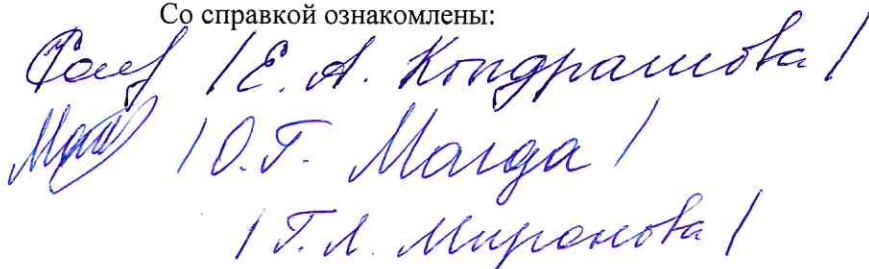 Со справкой ознакомлены:
/Е. А. Кондрашова/
/О. Г. Магда/
/Г. А. Миронова/